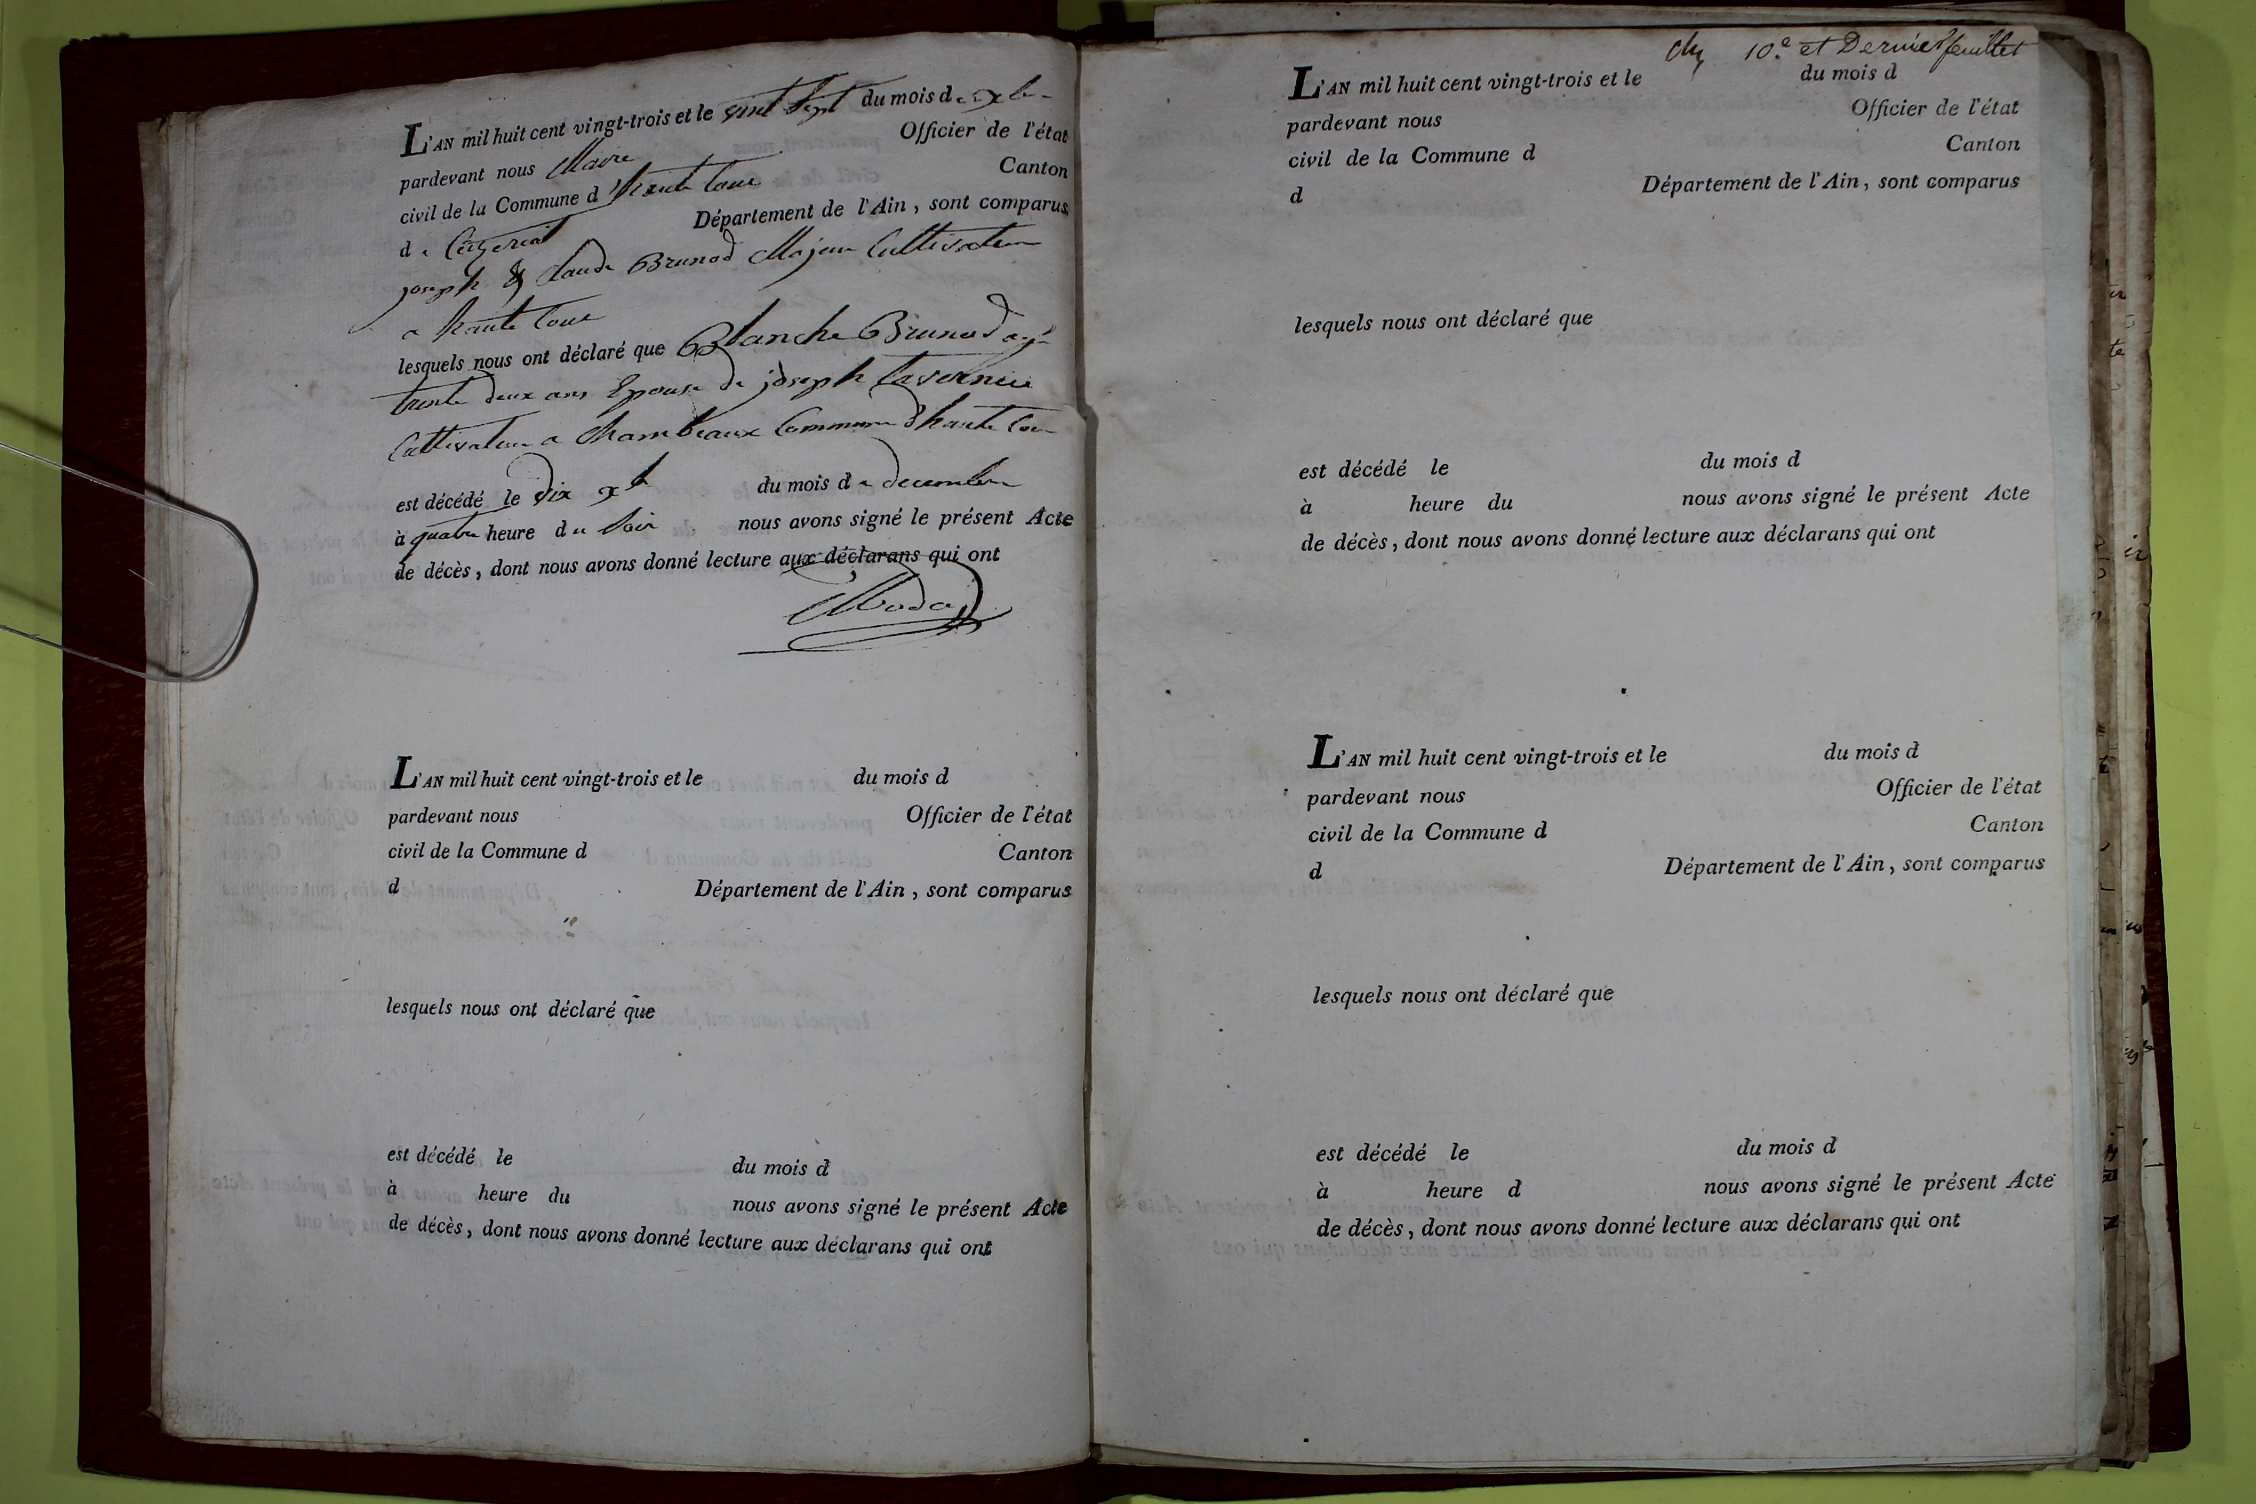 L'AN mil huit cent vingt-trois et le vint sept du mois de xbre
pardevant nous Maire Officier de l'état
civil de la Commune d'haute Cour Canton
de Ceyzeriat Département de l'Ain, sont comparus
joseph & Claude Brunod Majeur Cultivateur
a haute Cour
lesquels nous ont déclaré que Blanche Brunod agé
trente deux ans Epouse de joseph Tavernier
Cultivateur a Chambeaux Commune d'haute Cour
est décédé le dix du mois de decembre
à quatre heure du Soir nous avons signé le présent Acte
de décès, dont nous avons donné lecture aux déclarans qui ont
L'AN mil huit cent vingt-trois et le du mois d
pardevant nous Officier de l'état
civil de la Commune d Canton
d Département de l'Ain, sont comparus
lesquels nous ont déclaré que
est décédé le du mois d
à heure du nous avons signé le présent Acte
de décès, dont nous avons donné lecture aux déclarans qui ont
10.e et Dernier feuillet
L'AN mil huit cent vingt-trois et le du mois d
pardevant nous Officier de l'état
civil de la Commune d Canton
d Département de l'Ain, sont comparus
lesquels nous ont déclaré que
est décédé le du mois d
à heure du nous avons signé le présent Acte
de décès, dont nous avons donné lecture aux déclarans qui ont
L'AN mil huit cent vingt-trois et le du mois d
pardevant nous Officier de l'état
civil de la Commune d Canton
d Département de l'Ain, sont comparus
lesquels nous ont déclaré que
est décédé le du mois d
à heure d nous avons signé le présent Acte
de décès, dont nous avons donné lecture aux déclarans qui ont